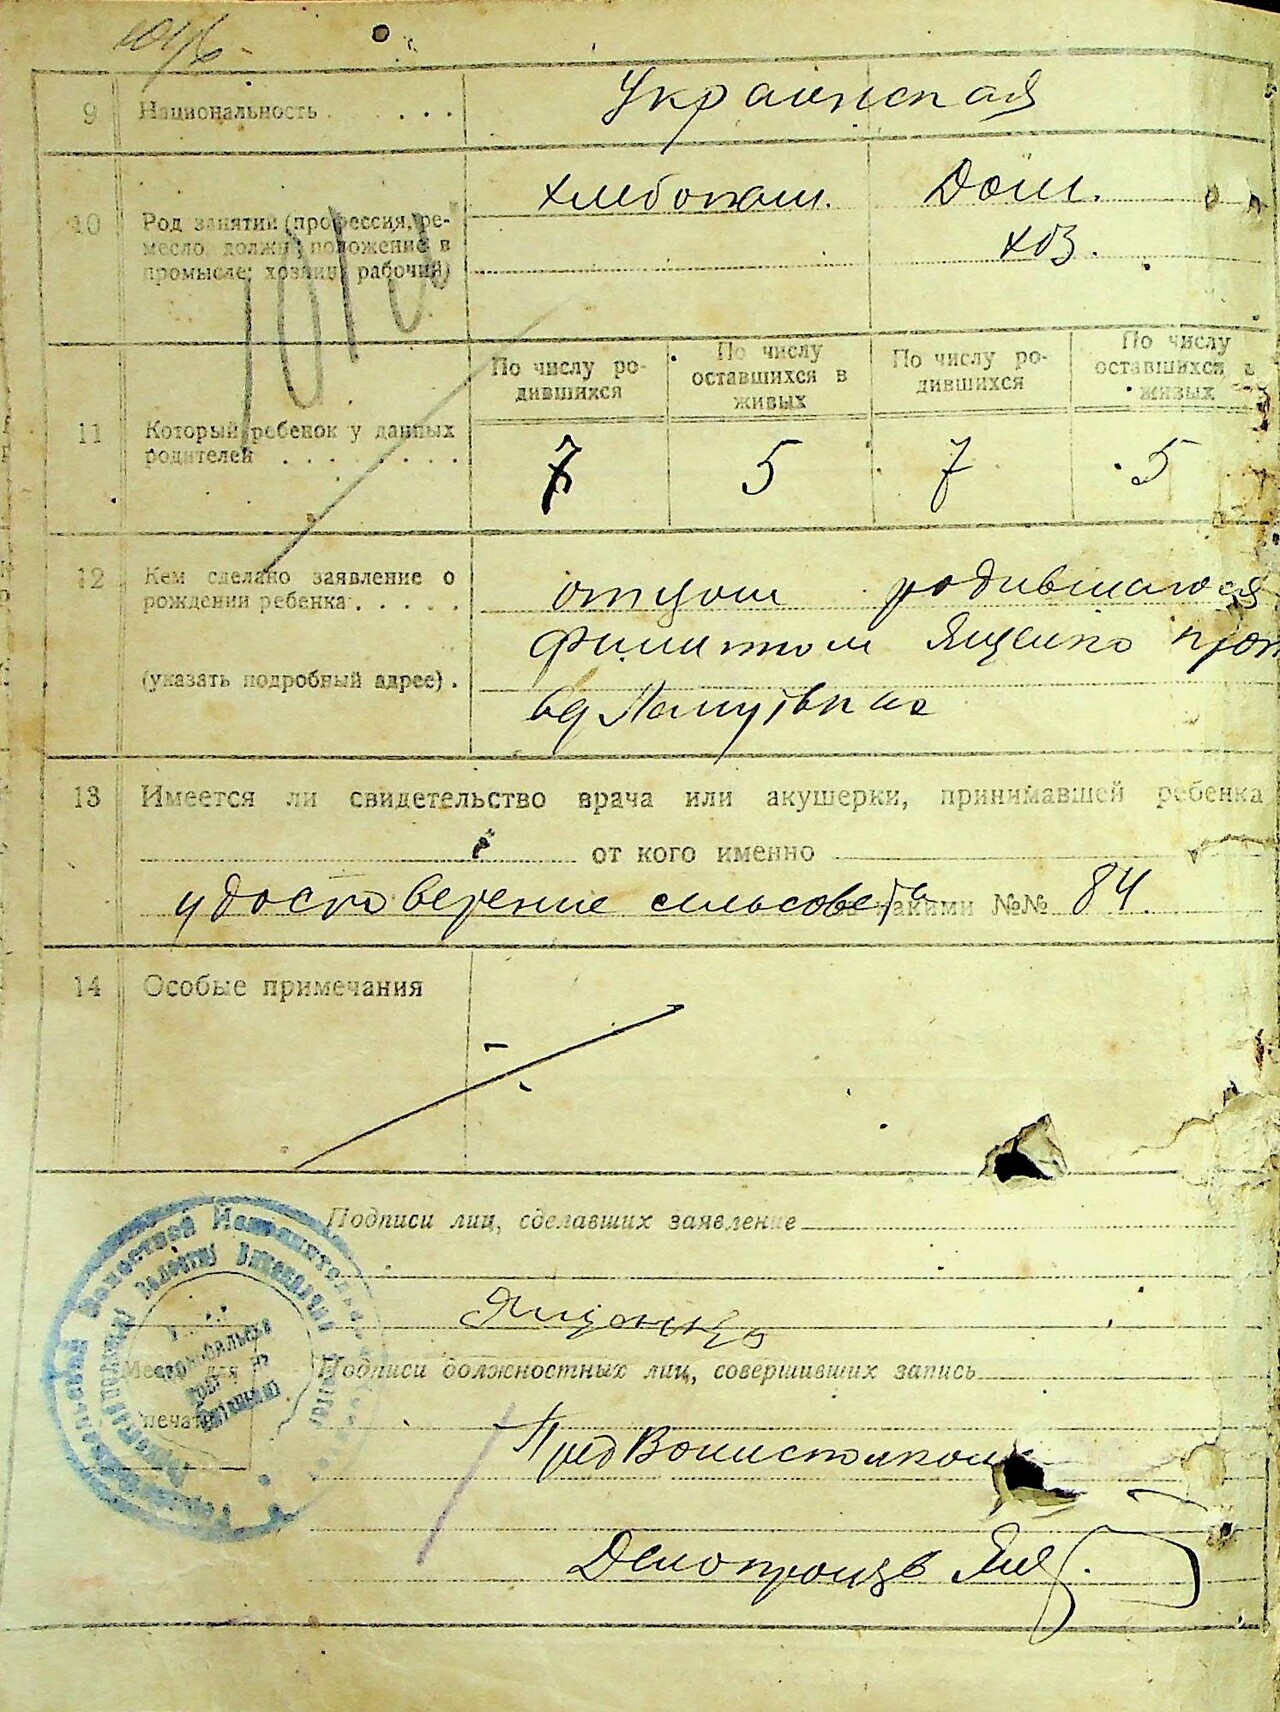 9 Национальность . . . . . Украинская
10 Род занятий (профессия, ре-
месло, должн., положение в
промысле: хозяин, рабочий)
хлебопаш. Дом.
хоз.
По числу ро-
дившихся
По числу
оставшихся в
живых
По числу ро-
дившихся
По числу
оставшихся в
живых
11 Который ребенок у данных
родителей . . . . . . . .
7 5 7 5
12 Кем сделано заявление о
рождении ребенка . . . . .
(указать подробный адрес) .
отцом родившагося
Филиппом Ященко
13 Имеется ли свидетельство врача или акушерки, принимавшей ребенка
от кого именно
удостоверение сельсовета какими №№ 84.
14 Особые примечания
Подписи лиц, сделавших заявление
Ященко
Место для
печати
Подписи должностных лиц, совершивших запись
Пред Волисполкома
Делопроизв